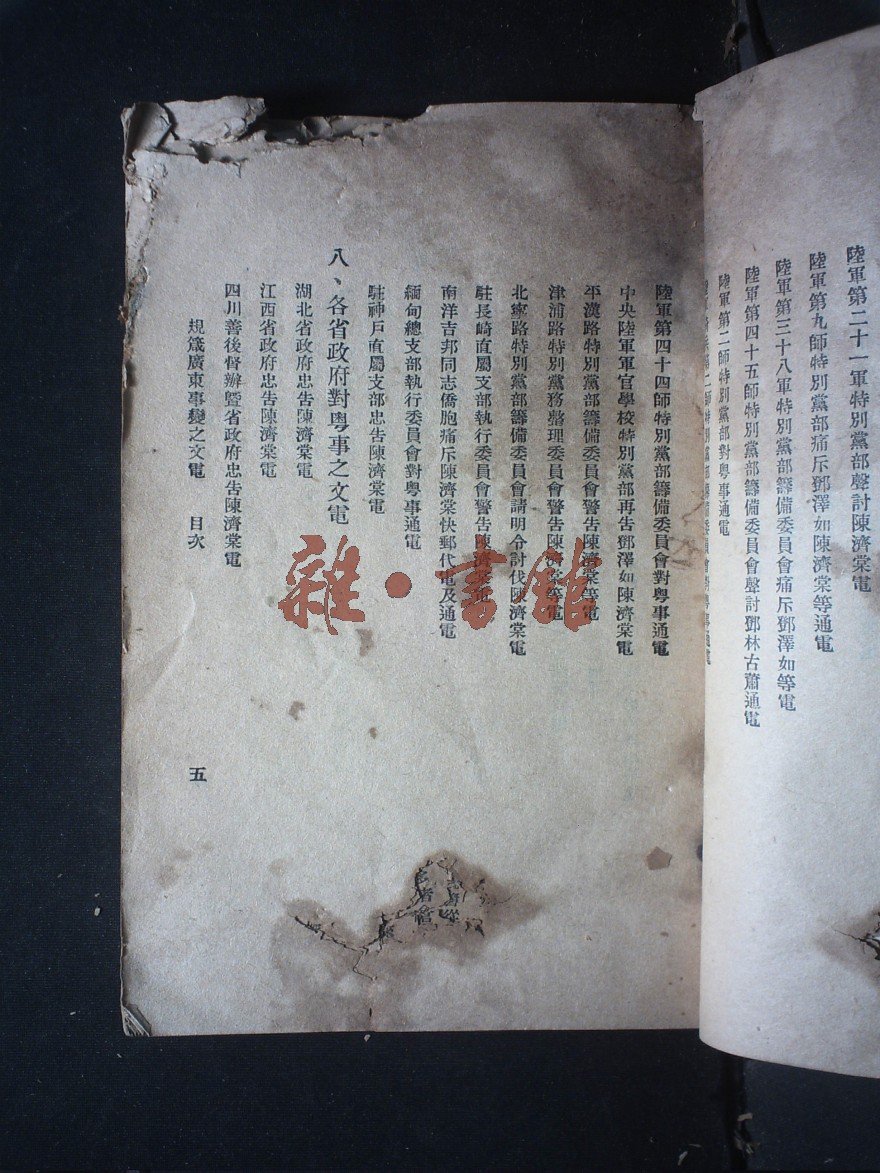 陸軍第二十一軍特別黨部聲討陳濟棠電
陸軍第九師特別黨部痛斥鄧澤如陳濟棠等通電
陸軍第三十八軍特別黨部籌備委員會痛斥鄧澤如等電
陸軍第四十五師特別黨部籌備委員會聲討鄧林古蕭通電
陸軍第二師特別黨部對粵事通電
陸軍第四十四師特別黨部籌備委員會對粵事通電
中央陸軍軍官學校特別黨部再告鄧澤如陳濟棠電
平漢路特別黨部籌備委員會警告陳濟棠等電
津浦路特別黨務整理委員會警告陳濟棠等電
北寧路特別黨部籌備委員會請明令討伐陳濟棠電
駐長崎直屬支部執行委員會警告陳濟棠電
南洋吉邦同志僑胞痛斥陳濟棠快郵代電及通電
緬甸總支部執行委員會對粵事通電
駐神戶直屬支部忠告陳濟棠電
八、各省政府對粵事之文電
湖北省政府忠告陳濟棠電
江西省政府忠告陳濟棠電
四川善後督辦暨省政府忠告陳濟棠電
規箴廣東事變之文電 目次
五
雜·書館